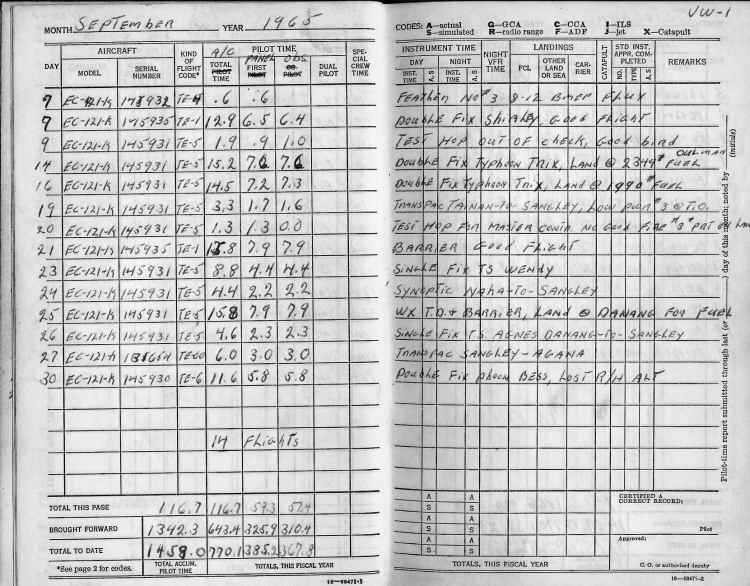 MONTH SEPTEMBER YEAR 1965
AIRCRAFT
KIND OF FLIGHT CODE*
A/C PILOT TIME
SPECIAL CREW TIME
DAY MODEL SERIAL NUMBER TOTAL PILOT TIME PANEL FIRST PILOT OBS. CO-PILOT DUAL PILOT
7 EC-121-K TE-4 .6 .6
7 EC-121-K 145935 TE-1 12.9 6.5 6.4
9 EC-121-K 145931 TE-5 1.9 .9 1.0
14 EC-121-K 145931 TE-5 15.2 7.6 7.6
16 EC-121-K 145931 TE-5 14.5 7.2 7.3
19 EC-121-K 145931 TE-5 3.3 1.7 1.6
20 EC-121-K 145931 TE-5 1.3 1.3 0.0
21 EC-121-K 145935 TE-1 15.8 7.9 7.9
23 EC-121-K 145931 TE-5 8.8 4.4 4.4
24 EC-121-K 145931 TE-5 4.4 2.2 2.2
25 EC-121-K 145931 TE-5 15.8 7.9 7.9
26 EC-121-K 145931 TE-5 4.6 2.3 2.3
27 EC-121-K 6.0 3.0 3.0
30 EC-121-K 145930 TE-6 11.6 5.8 5.8
14 FLIGHTS
TOTAL THIS PAGE 116.7 116.7 59.3 57.4
BROUGHT FORWARD 1342.3 643.4 325.9 310.4
TOTAL TO DATE 1459.0 770.1 385.2 367.8
*See page 2 for codes. TOTAL ACCUM. PILOT TIME TOTALS, THIS FISCAL YEAR
16—69471-1
VW-1
CODES: A—actual G—GCA C—CCA I—ILS
S—simulated R—radio range F—ADF J—jet X—Catapult
INSTRUMENT TIME NIGHT VFR TIME LANDINGS CATAPULT STD INST. APPR. COMPLETED REMARKS
DAY NIGHT FCL OTHER LAND OR SEA CARRIER NO. TYPE A S
INST. TIME A S INST. TIME A S
FEATHER NO #3 8-12 BMEP FLUX
DOUBLE FIX SHIRLEY, GOOD FLIGHT
TEST HOP OUT OF CHECK, GOOD BIRD
DOUBLE FIX TYPHOON TRIX, LAND @ 2349# FUEL
DOUBLE FIX TYPHOON TRIX, LAND @ 1990# FUEL
TRANSPAC TAINAN-TO-SANGLEY, LOW PWR #3 @ T.O.
TEST HOP FOR MASTER NO GOOD FIRE #3 PRT ON
BARRIER GOOD FLIGHT
SINGLE FIX TS WENDY
SYNOPTIC NAHA-TO-SANGLEY
WX T.D. & BARRIER, LAND @ DANANG FOR FUEL
SINGLE FIX T.S. AGNES DANANG-TO-SANGLEY
TRANSPAC SANGLEY-AGANA
DOUBLE FIX BESS, LOST R/H ALT
Pilot-time report submitted through last (or day of this month; noted by (initials)
A A CERTIFIED A CORRECT RECORD:
S S
A A
S S Pilot
A A
S S
TOTALS, THIS FISCAL YEAR C. O. or authorized deputy
16—69471-2